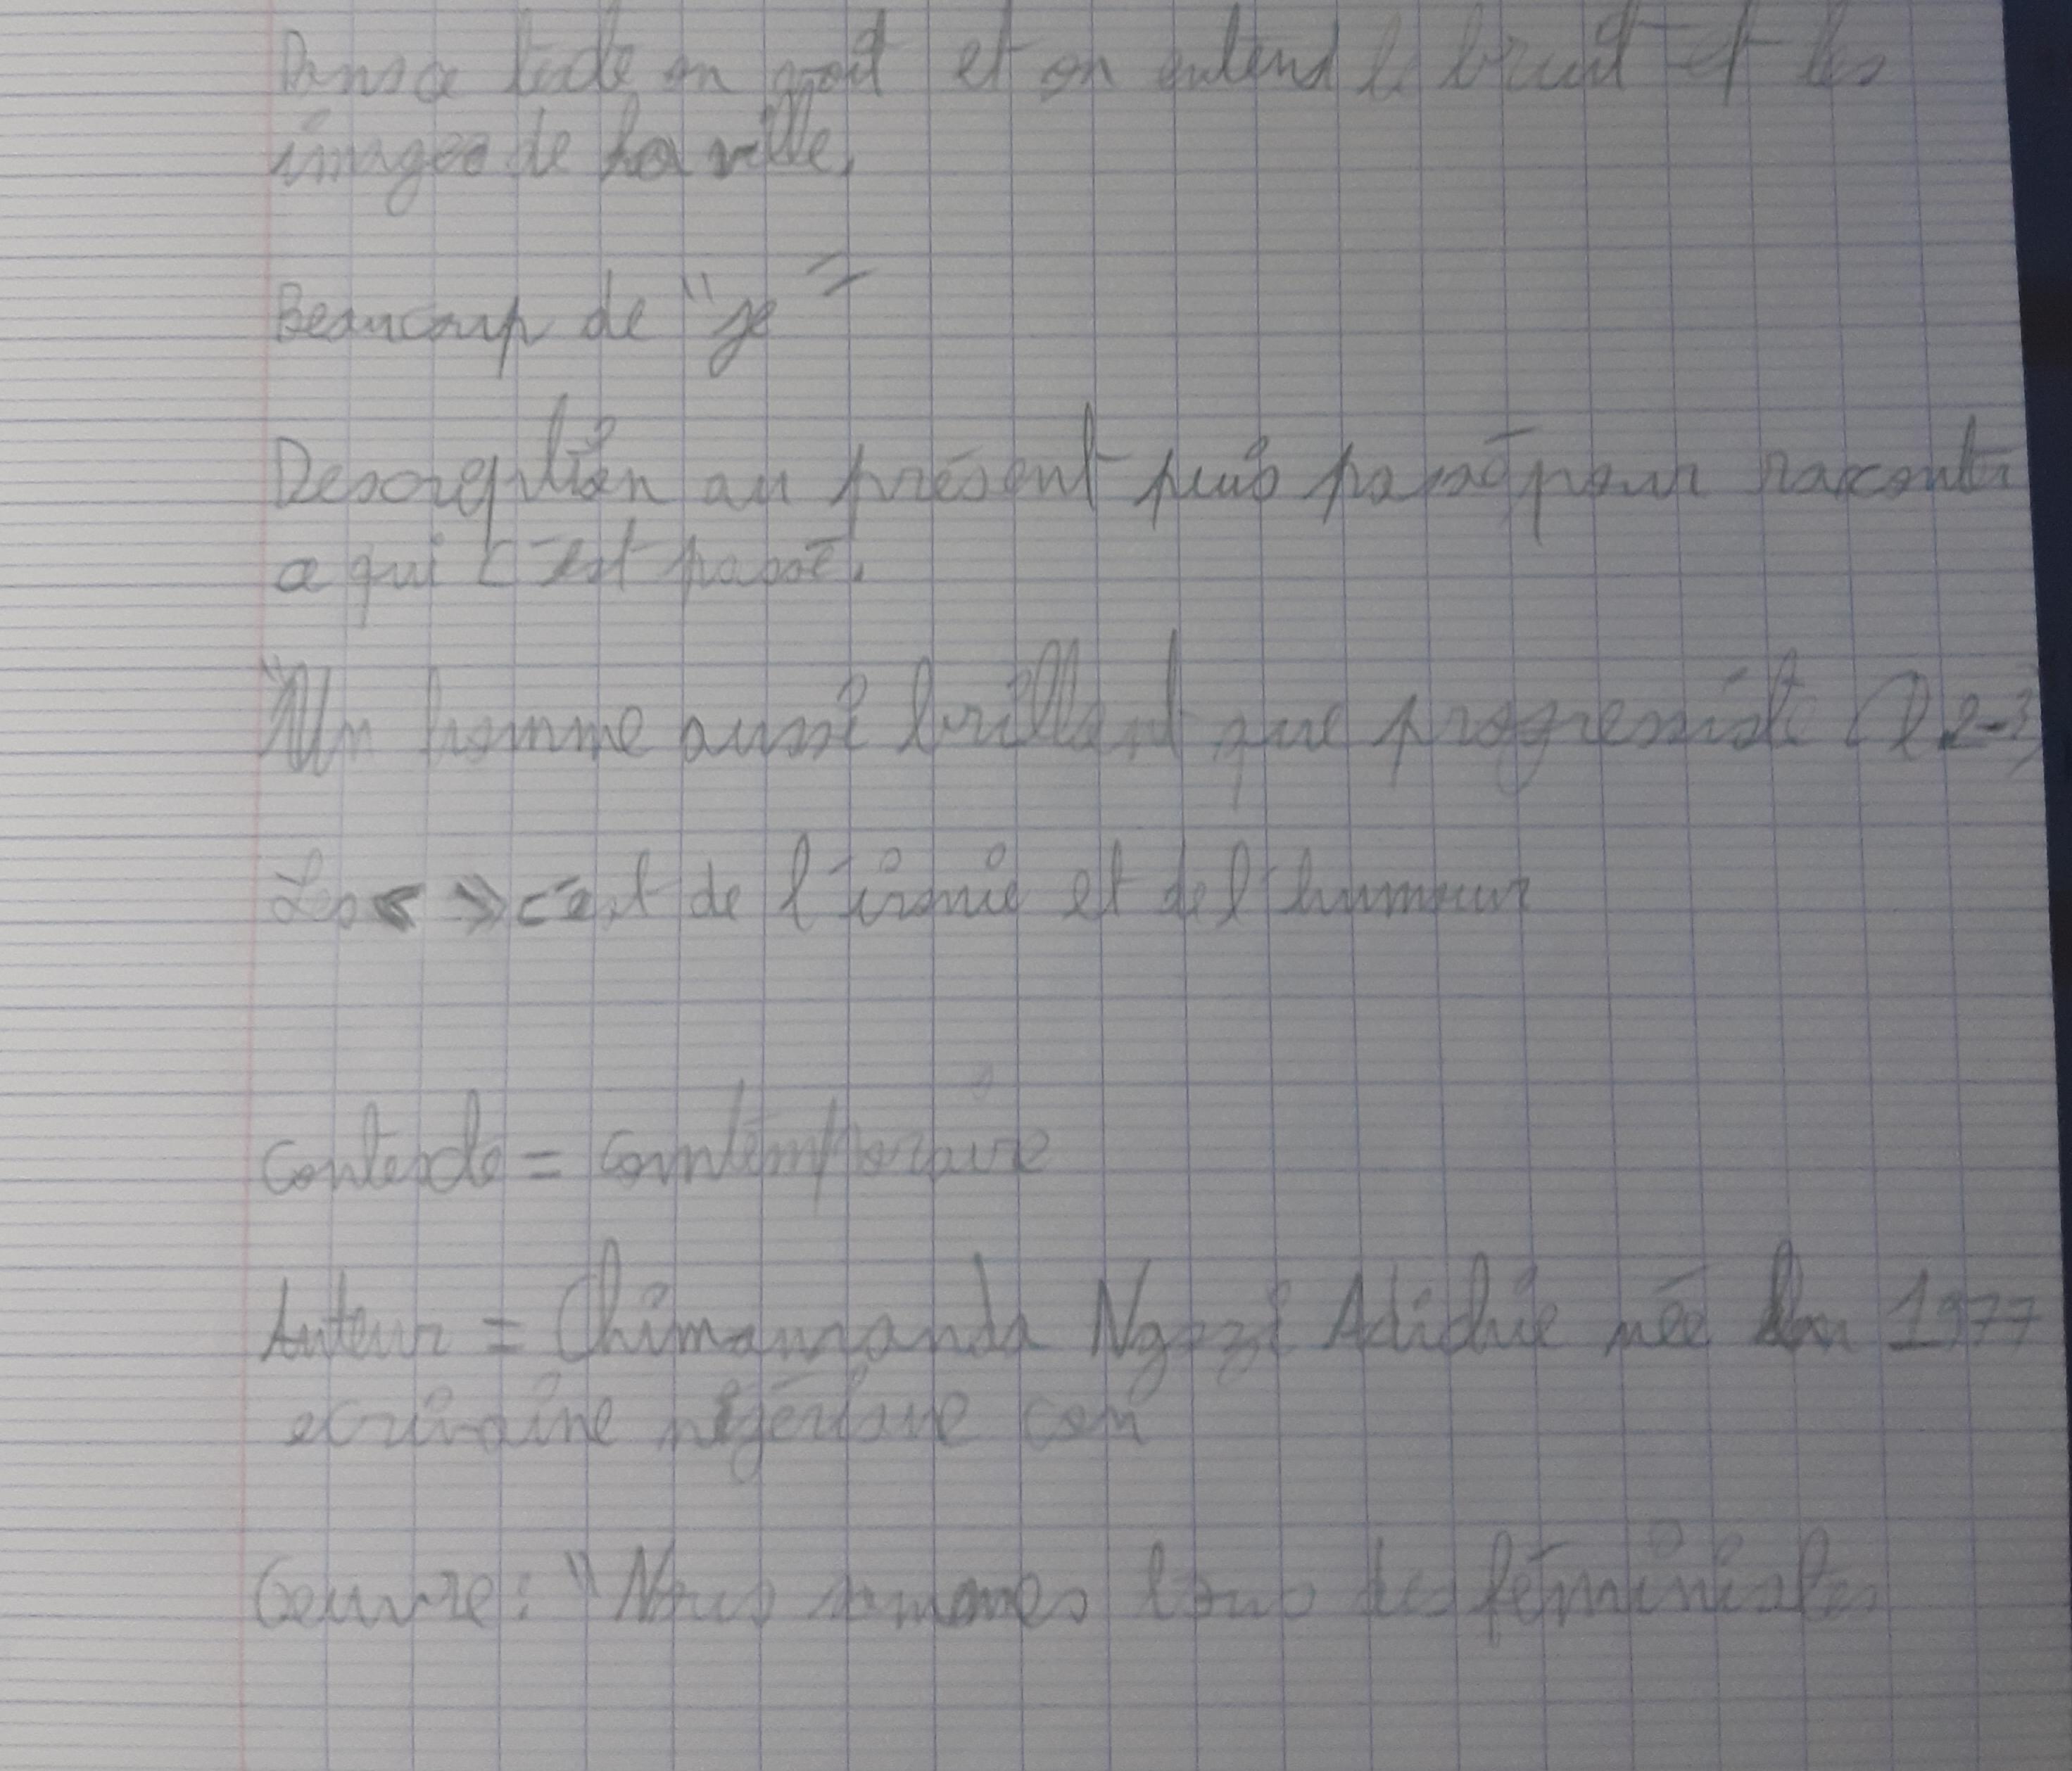 Dans ce texte on voit et on entend le bruit et les
images de la ville.
Beaucoup de "je"
Description au présent puis passé pour raconter
a qui c'est passé.
"Un homme aussi brillant que progressiste (l 2-3)
Les « » c'est de l'ironie et de l'humour
Contexte = contemporaire
Auteur = Chimamanda Ngozi Adichie née en 1977
ecrivaine nigériane con
Oeuvre: "Nous sommes tous des féministes